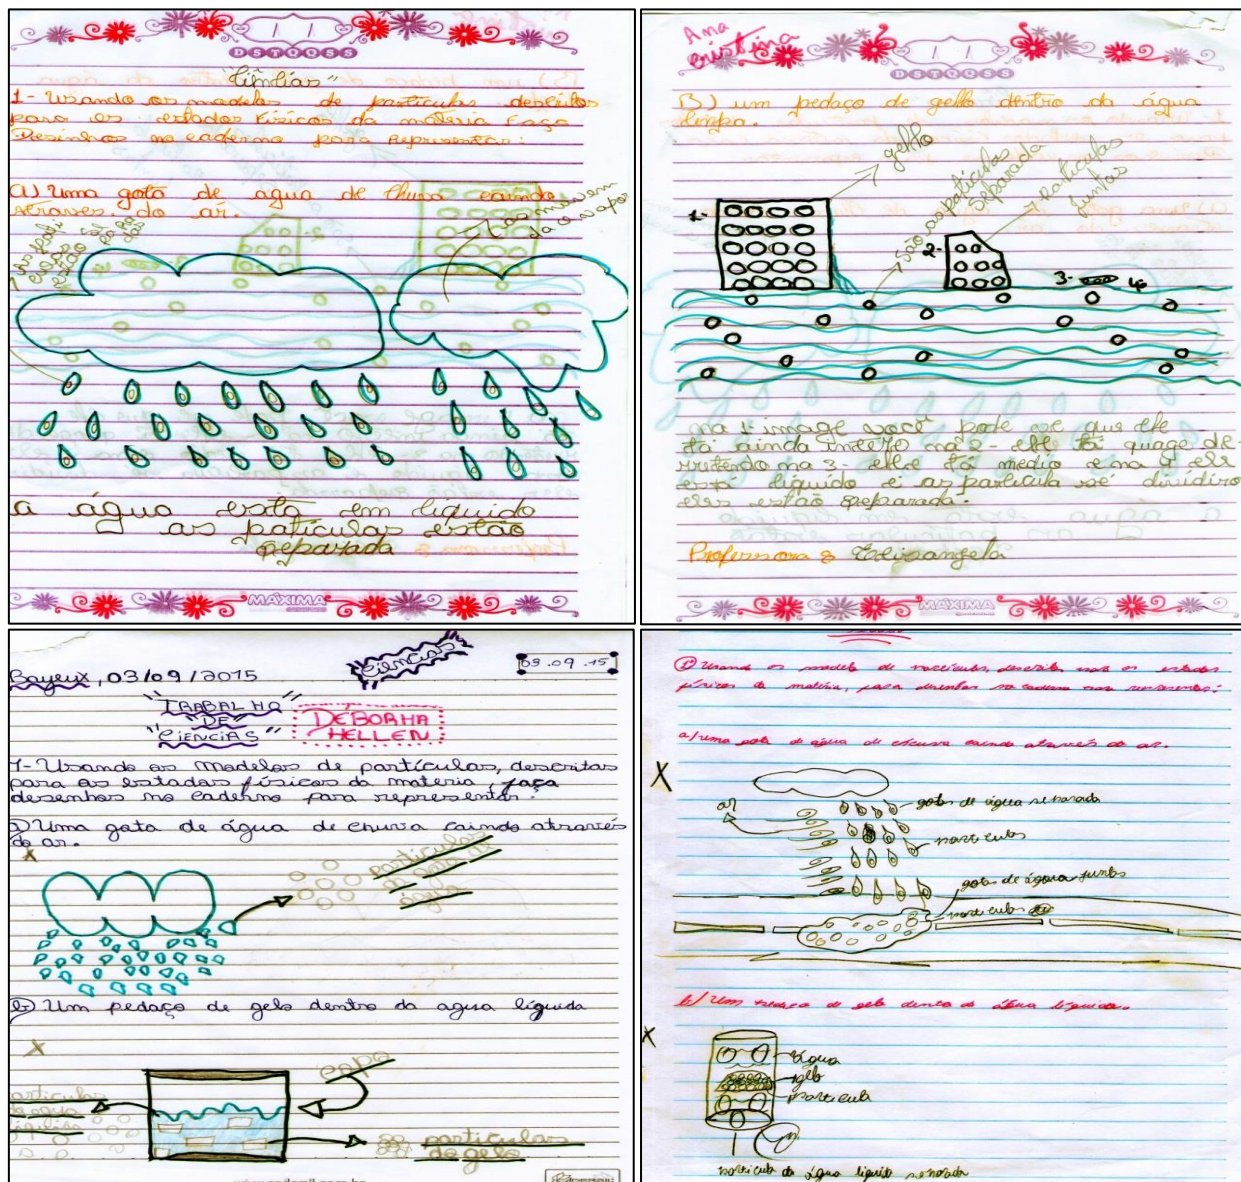 DSTQQSS
"Ciências"
1- Usando os modelos de particulas descritos
para os estados Físicos da materia Faça
Desinhos no caderno para Representar:
(A) Uma gota de agua de chuva caindo
atraves. do ar.
a água está em liquido
as patículas estão
separada
MÁXIMA
Ana
cristina
DSTQQSS
B) um pedaço de gello dentro da água
limpa.
gello
são as partículas
separada
particulas
juntas
1-
2-
3-
na 1- image você pode ver que elle
tá ainda inteiro na 2- elle tá quage de-
rritendo na 3- elle tá medio e na 4 elle
está liquido ei as particula sé dividiro
eles estão separada.
Professora: Elisangela
MÁXIMA
Bayeux, 03/09/2015
Ciências
03.09.15
"TRABALHO
"DE"
"CIÊNCIAS"
DEBORHA
HELLEN
1- Usando os modelos de partículas, descritas
para os estados físicos da materia, faça
desenhos no caderno para representar:
a) Uma gota de água de chuva caindo através
do ar.
X
particulas
b) Um pedaço de gelo dentro da agua líquida
X
copo
particulas
de agua
liquida
particulas
do gelo
① Usando os modelo de particulas, descrita para os estados
físicos da matéria, faça desenhos no caderno para representar:
a) uma gota de água de chuva caindo através do ar.
X
ar
gotas de água separada
particulas
gotas de água juntas
particulas
b) Um pedaço de gelo dentro da água líquida.
X
água
gelo
particula
particula da água liquida separada